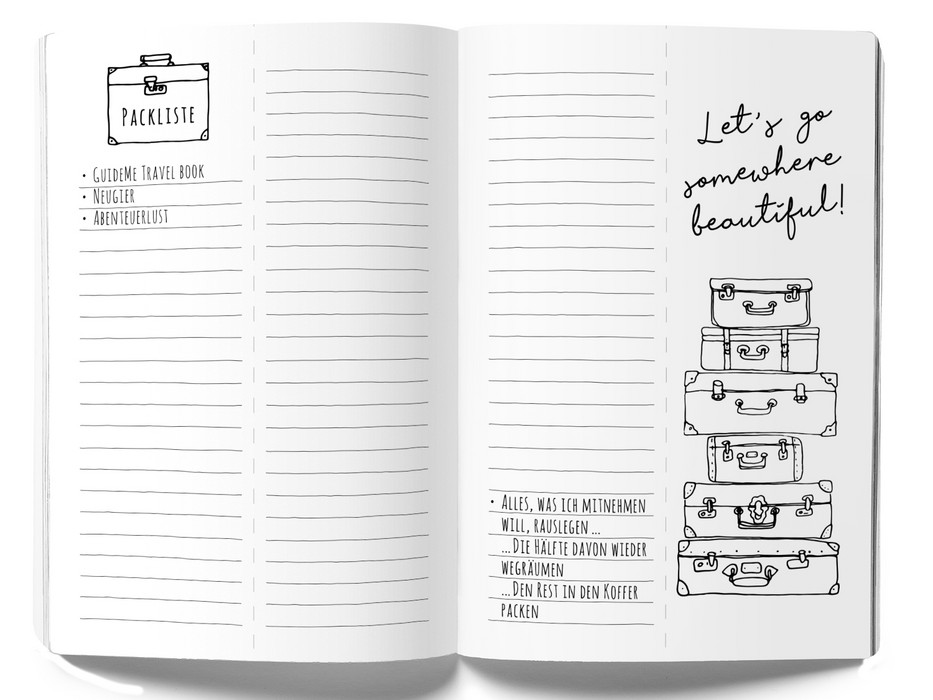 PACKLISTE
• GUIDEME TRAVEL BOOK
• NEUGIER
• ABENTEUERLUST
• ALLES, WAS ICH MITNEHMEN
WILL, RAUSLEGEN ...
...DIE HÄLFTE DAVON WIEDER
WEGRÄUMEN
...DEN REST IN DEN KOFFER
PACKEN
Let's go
somewhere
beautiful!